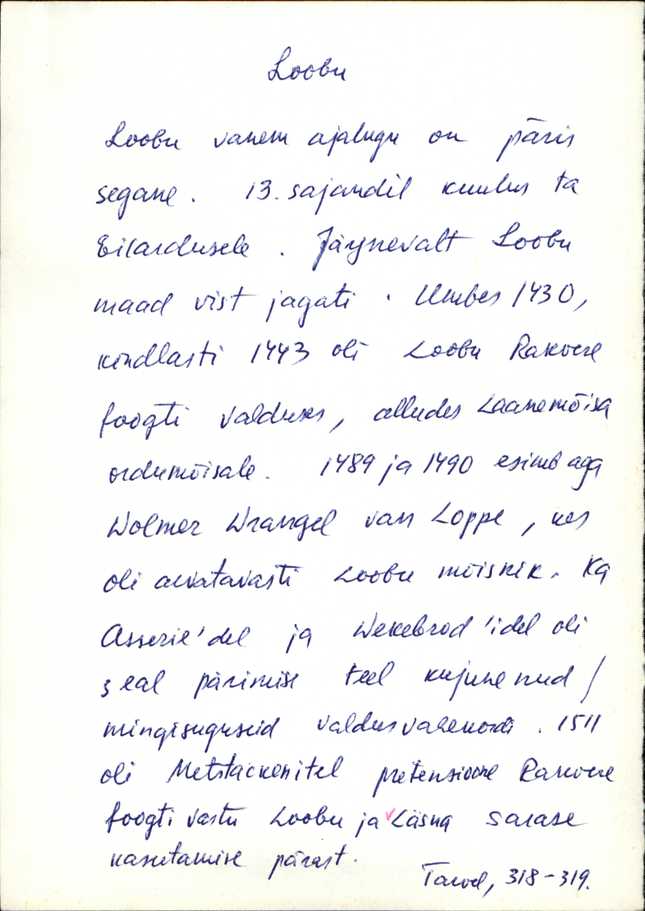 Loobu
Loobu vanem ajalugu on päris
segane. 13. sajandil kuulus ta
Eilardusele. Järgnevalt Loobu
maad vist jagati. Umbes 1430,
kindlasti 1443 oli Loobu Rakvere
foogti valduses, alludes Laanemõisa
ordumõisale. 1489 ja 1490 esineb aga
Wolmer Wrangel van Loppe, kes
oli arvatavasti Loobu mõisnik. Ka
Asserie'del ja Wekebrod'idel oli
seal pärimise teel kujunenud
mingisuguseid valdusvahekordi. 1511
oli Metstackenitel pretensioone Rakvere
foogti vastu Loobu ja Läsna sarase
kasutamise pärast.
318-319.